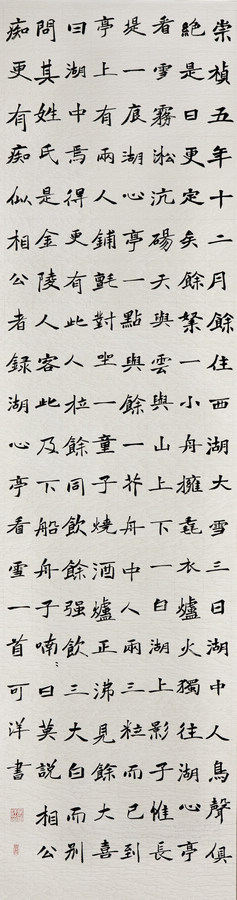 崇禎五年十二月餘住西湖大雪三日湖中人鳥聲俱
絶是日更定矣餘拏一小舟擁毳衣爐火獨往湖心亭
看雪霧淞沆碭天與雲與山上下一白湖上影子惟長
堤一痕湖心亭一點與餘一芥舟中人兩三粒而已到
亭上有兩人鋪氈對坐一童子燒酒爐正沸見餘大喜
曰湖中焉得更有此人拉餘同飲餘强飲三大白而别
問其姓氏是金陵人客此及下船舟子喃〻曰莫說相公
痴更有痴似相公者録湖心亭看雪一首可洋書